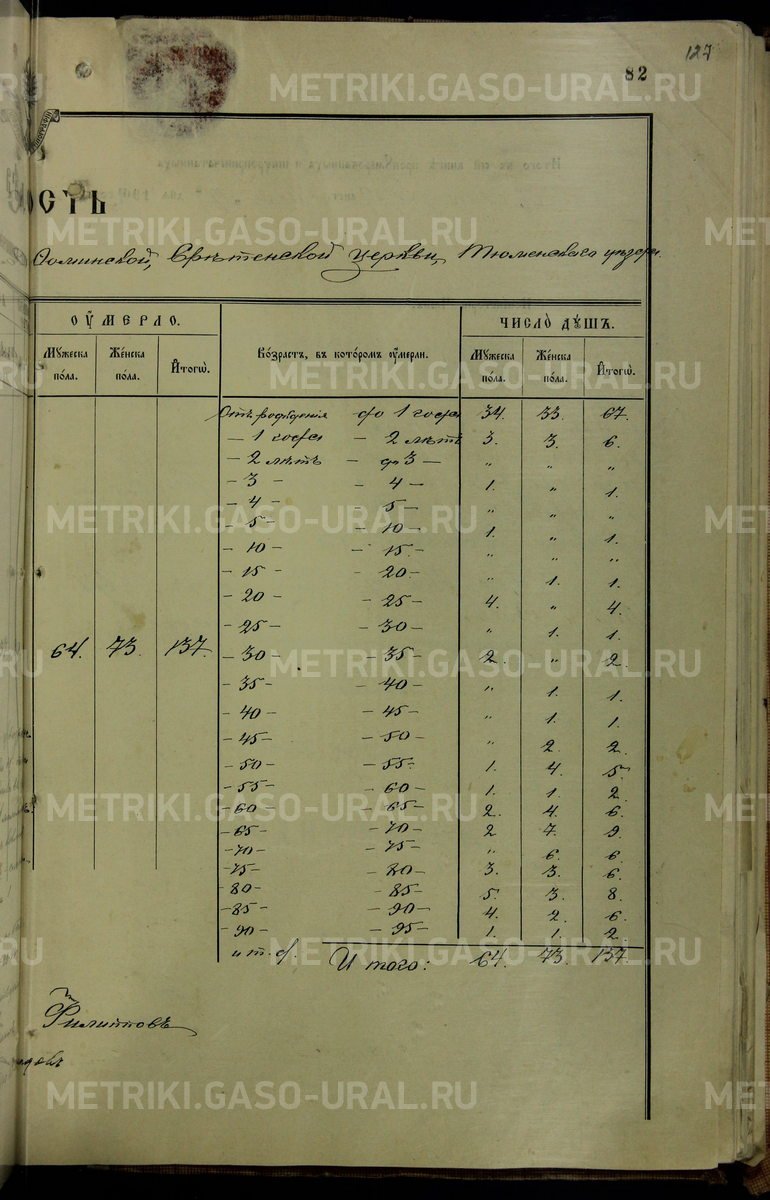 127
82
METRIKI.GASO-URAL.RU
ОСТЬ
Фоминской, Срѣтенской церкви, Тюменскаго уѣзда.
ОУМЕРЛО. ЧИСЛО ДУШЪ.
Мужеска пола. Женска пола. Итого. Возрастъ, въ которомъ оумерли. Мужеска пола. Женска пола. Итого.
Отъ рожденія до 1 года 34. 33. 67.
— 1 года — 2 лѣтъ 3. 3. 6.
— 2 лѣтъ — до 3 — " " "
— 3 — — 4 — 1. " 1.
— 4 — 5 — " " "
— 5 — — 10 — 1. " 1.
— 10 — — 15. — " " "
— 15 — — 20 — " 1. 1.
— 20 — — 25 — 4. " 4.
— 25 — — 30 — " 1. 1.
64. 73. 137. — 30 — — 35 — 2. " 2.
— 35 — — 40 — " 1. 1.
— 40 — — 45 — " 1. 1.
— 45 — — 50 — " 2. 2.
— 50 — — 55 — 1. 4. 5.
— 55 — — 60 — 1. 1. 2.
— 60 — — 65 — 2. 4. 6.
— 65 — — 70 — 2. 7. 9.
— 70 — — 75 — " 6. 6.
— 75 — — 80 — 3. 3. 6.
— 80 — — 85 — 5. 3. 8.
— 85 — — 90 — 4. 2. 6.
— 90 — — 95 — 1. 1. 2.
и т. д. Итого: 64. 73. 137.
Филипповъ
METRIKI.GASO-URAL.RU